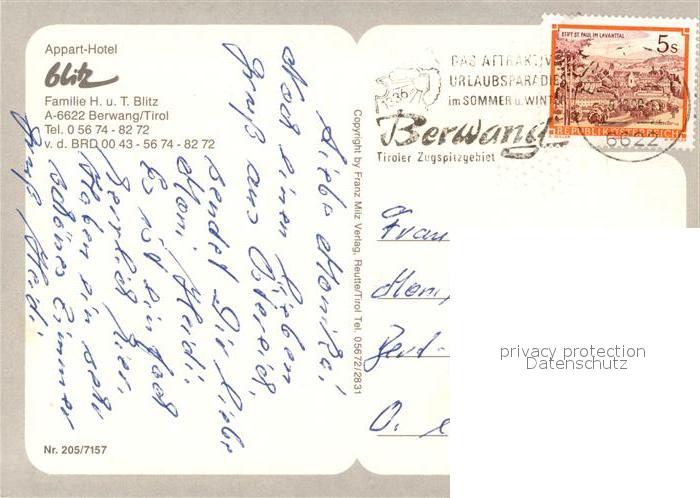 Appart-Hotel
Blitz
Familie H. u. T. Blitz
A-6622 Berwang/Tirol
Tel. 0 56 74 - 82 72
v. d. BRD 00 43 - 56 74 - 82 72
Liebe Monika!
Noch einen lieben
Gruß aus Österreich,
sendet Dir liebe
Moni, Heidi
Es ist einfach
herrlich hier.
Haben ein sehr
schönes Zimmer
Gruß Heidi
Nr. 205/7157
Copyright by Franz Milz Verlag, Reutte/Tirol Tel. 05672/2831
DAS ATTRAKTIVE
URLAUBSPARADIES
im SOMMER u. WINT
1336
Berwang
Tiroler Zugspitzgebiet
STIFT ST. PAUL IM LAVANTTAL
5s
REPUBLIK ÖSTERREICH
6622
Frau
Moni
privacy protection
Datenschutz